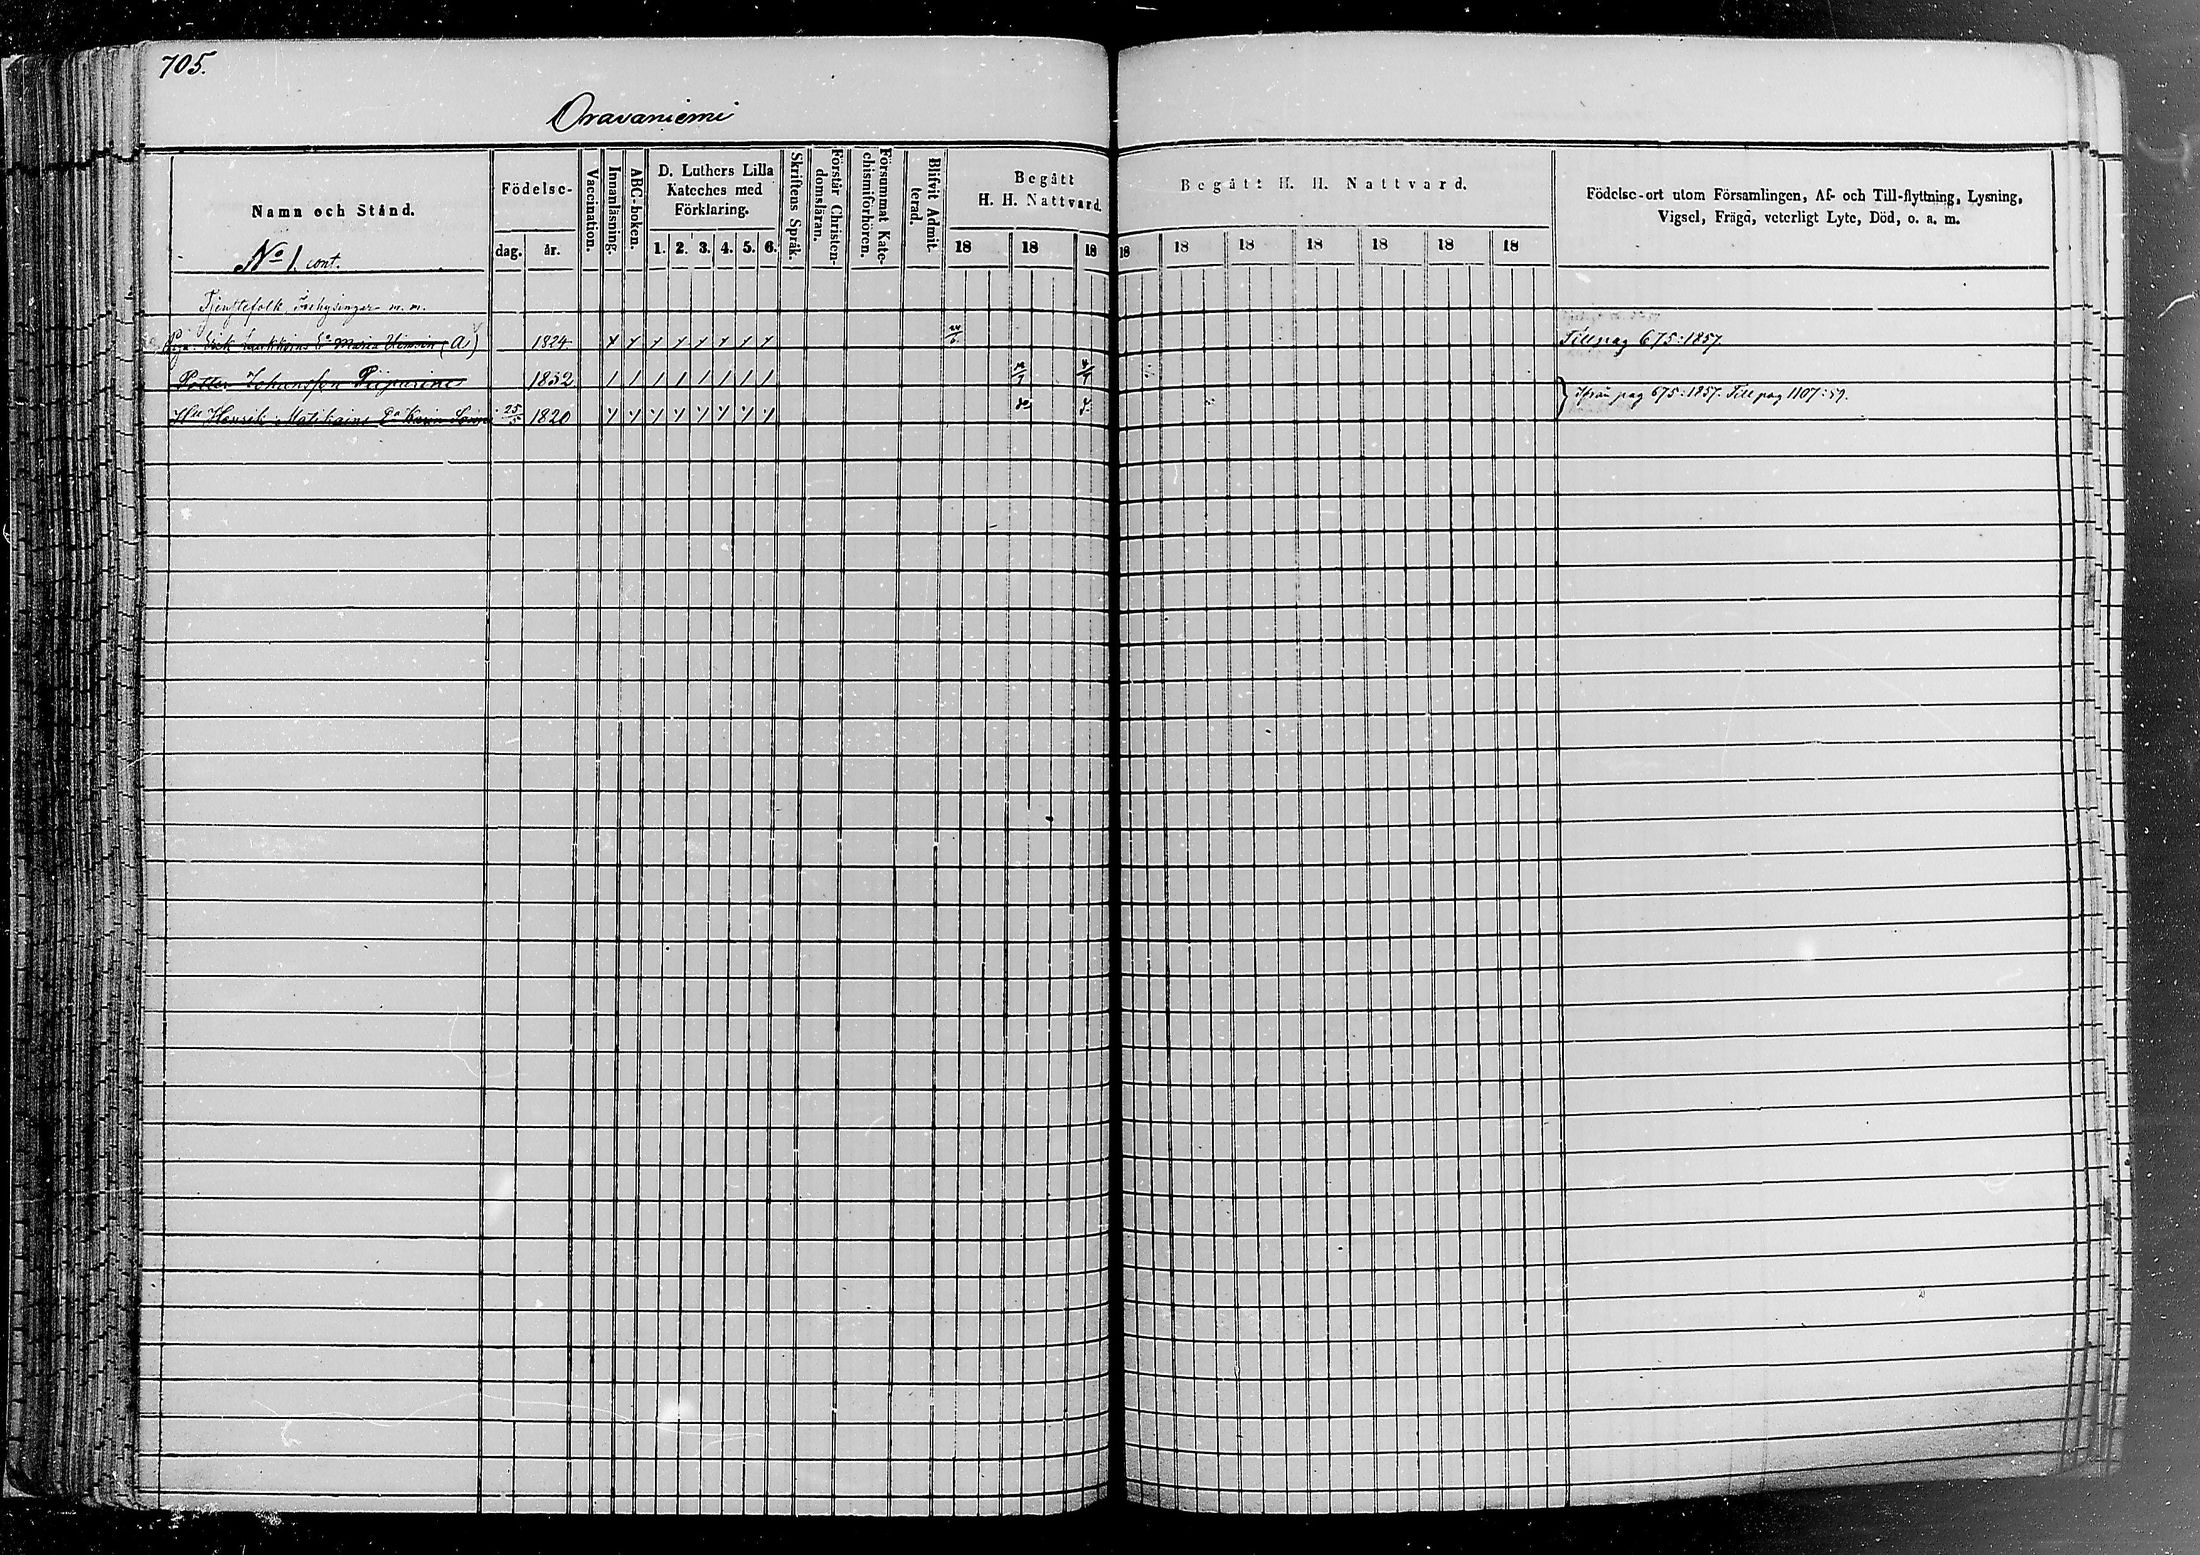 705.
Oravaniemi
Namn och Stånd.
Födelse-
dag. år.
Vaccination.
Innanläsning.
ABC-boken.
D. Luthers Lilla
Kateches med
Förklaring.
1. 2. 3. 4. 5. 6.
Skriftens Språk.
Förstår Christen-
domsläran.
Försummat Kate-
chismiförhören.
Blifvit Admit-
terad.
Begått
H. H. Nattvard.
18 18 18
Begått H. H. Nattvard.
18 18 18 18 18 18 18
Födelse-ort utom Församlingen, Af- och Till-flyttning, Lysning,
Vigsel, Frägd, veterligt Lyte, Död, o. a. m.
No 1. cont.
Tjenstefolk, Inhysingar m. m.
Erik Maria (A) 1824 Till pag 675:1857
Petter Johansson Piiparinen 1832
Henrik Matikains 25/5 1820 Ifrån pag 675:1857. Till pag 1107:59.